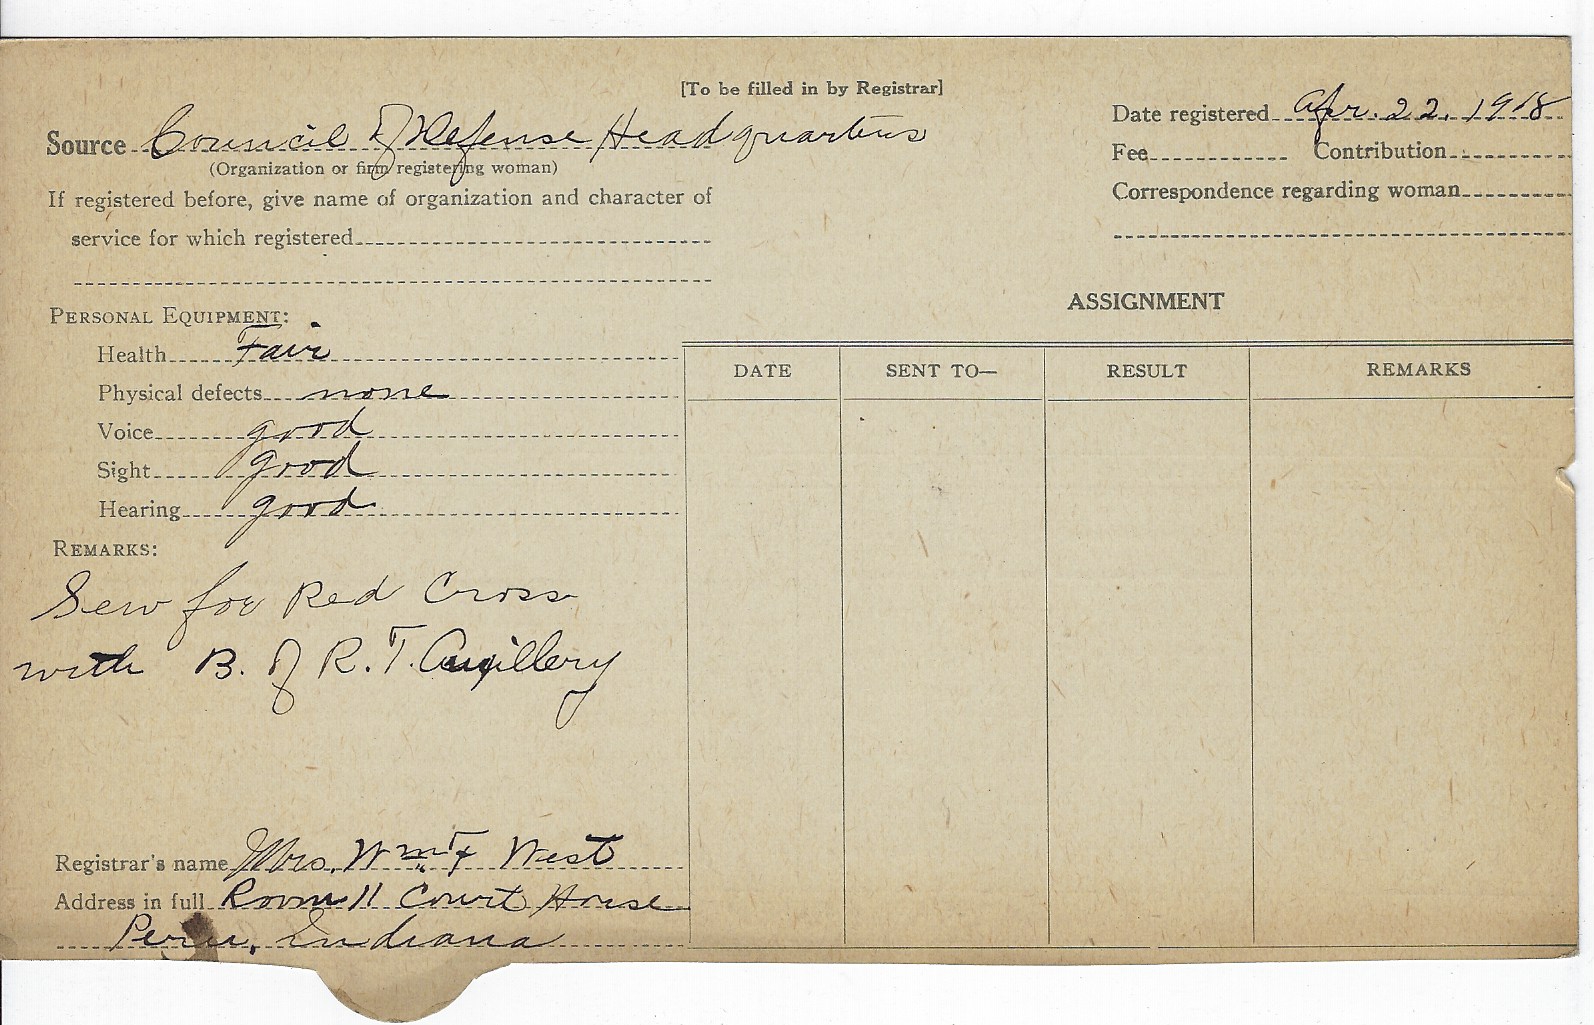 [To be filled in by Registrar]
Source Council of Defense Headquarters
(Organization or firm registering woman)
If registered before, give name of organization and character of
service for which registered
Date registered Apr. 22, 1918
Fee Contribution
Correspondence regarding woman
PERSONAL EQUIPMENT:
Health Fair
Physical defects none
Voice good
Sight good
Hearing good
REMARKS:
Sew for Red Cross
with B. of R. T. Auxillery
Registrar's name Mrs. Wm F West
Address in full Room 11 Court House
Peru, Indiana
ASSIGNMENT
DATE SENT TO— RESULT REMARKS